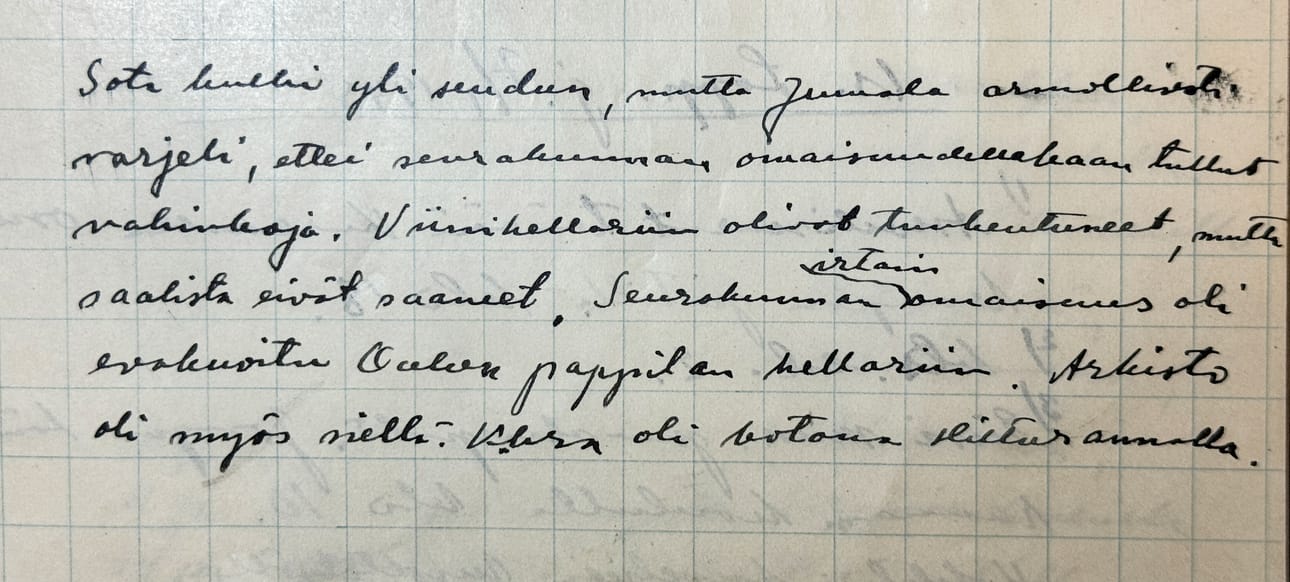 Sota kulki yli seudun, mutta Jumala armollisesti
varjeli, ettei seurakunnan omaisuudellekaan tullut
vahinkoja. Viinikellariin olivat tunkeutuneet, mutta
saalista eivät saaneet. Seurakunnan irtain omaisuus oli
evakuoitu Oulun pappilan kellariin. Arkisto
oli myös siellä. Kkhra oli kotona